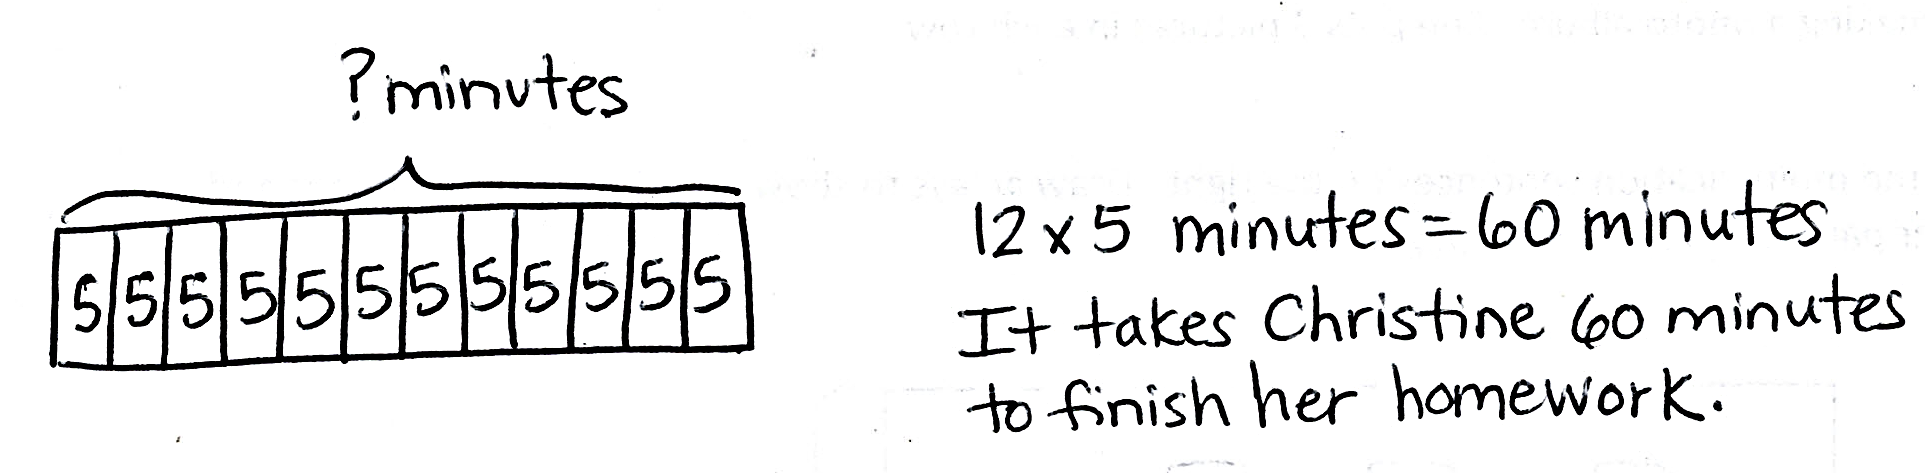 ? minutes
5 5 5 5 5 5 5 5 5 5 5 5
12 x 5 minutes = 60 minutes
It takes Christine 60 minutes
to finish her homework.